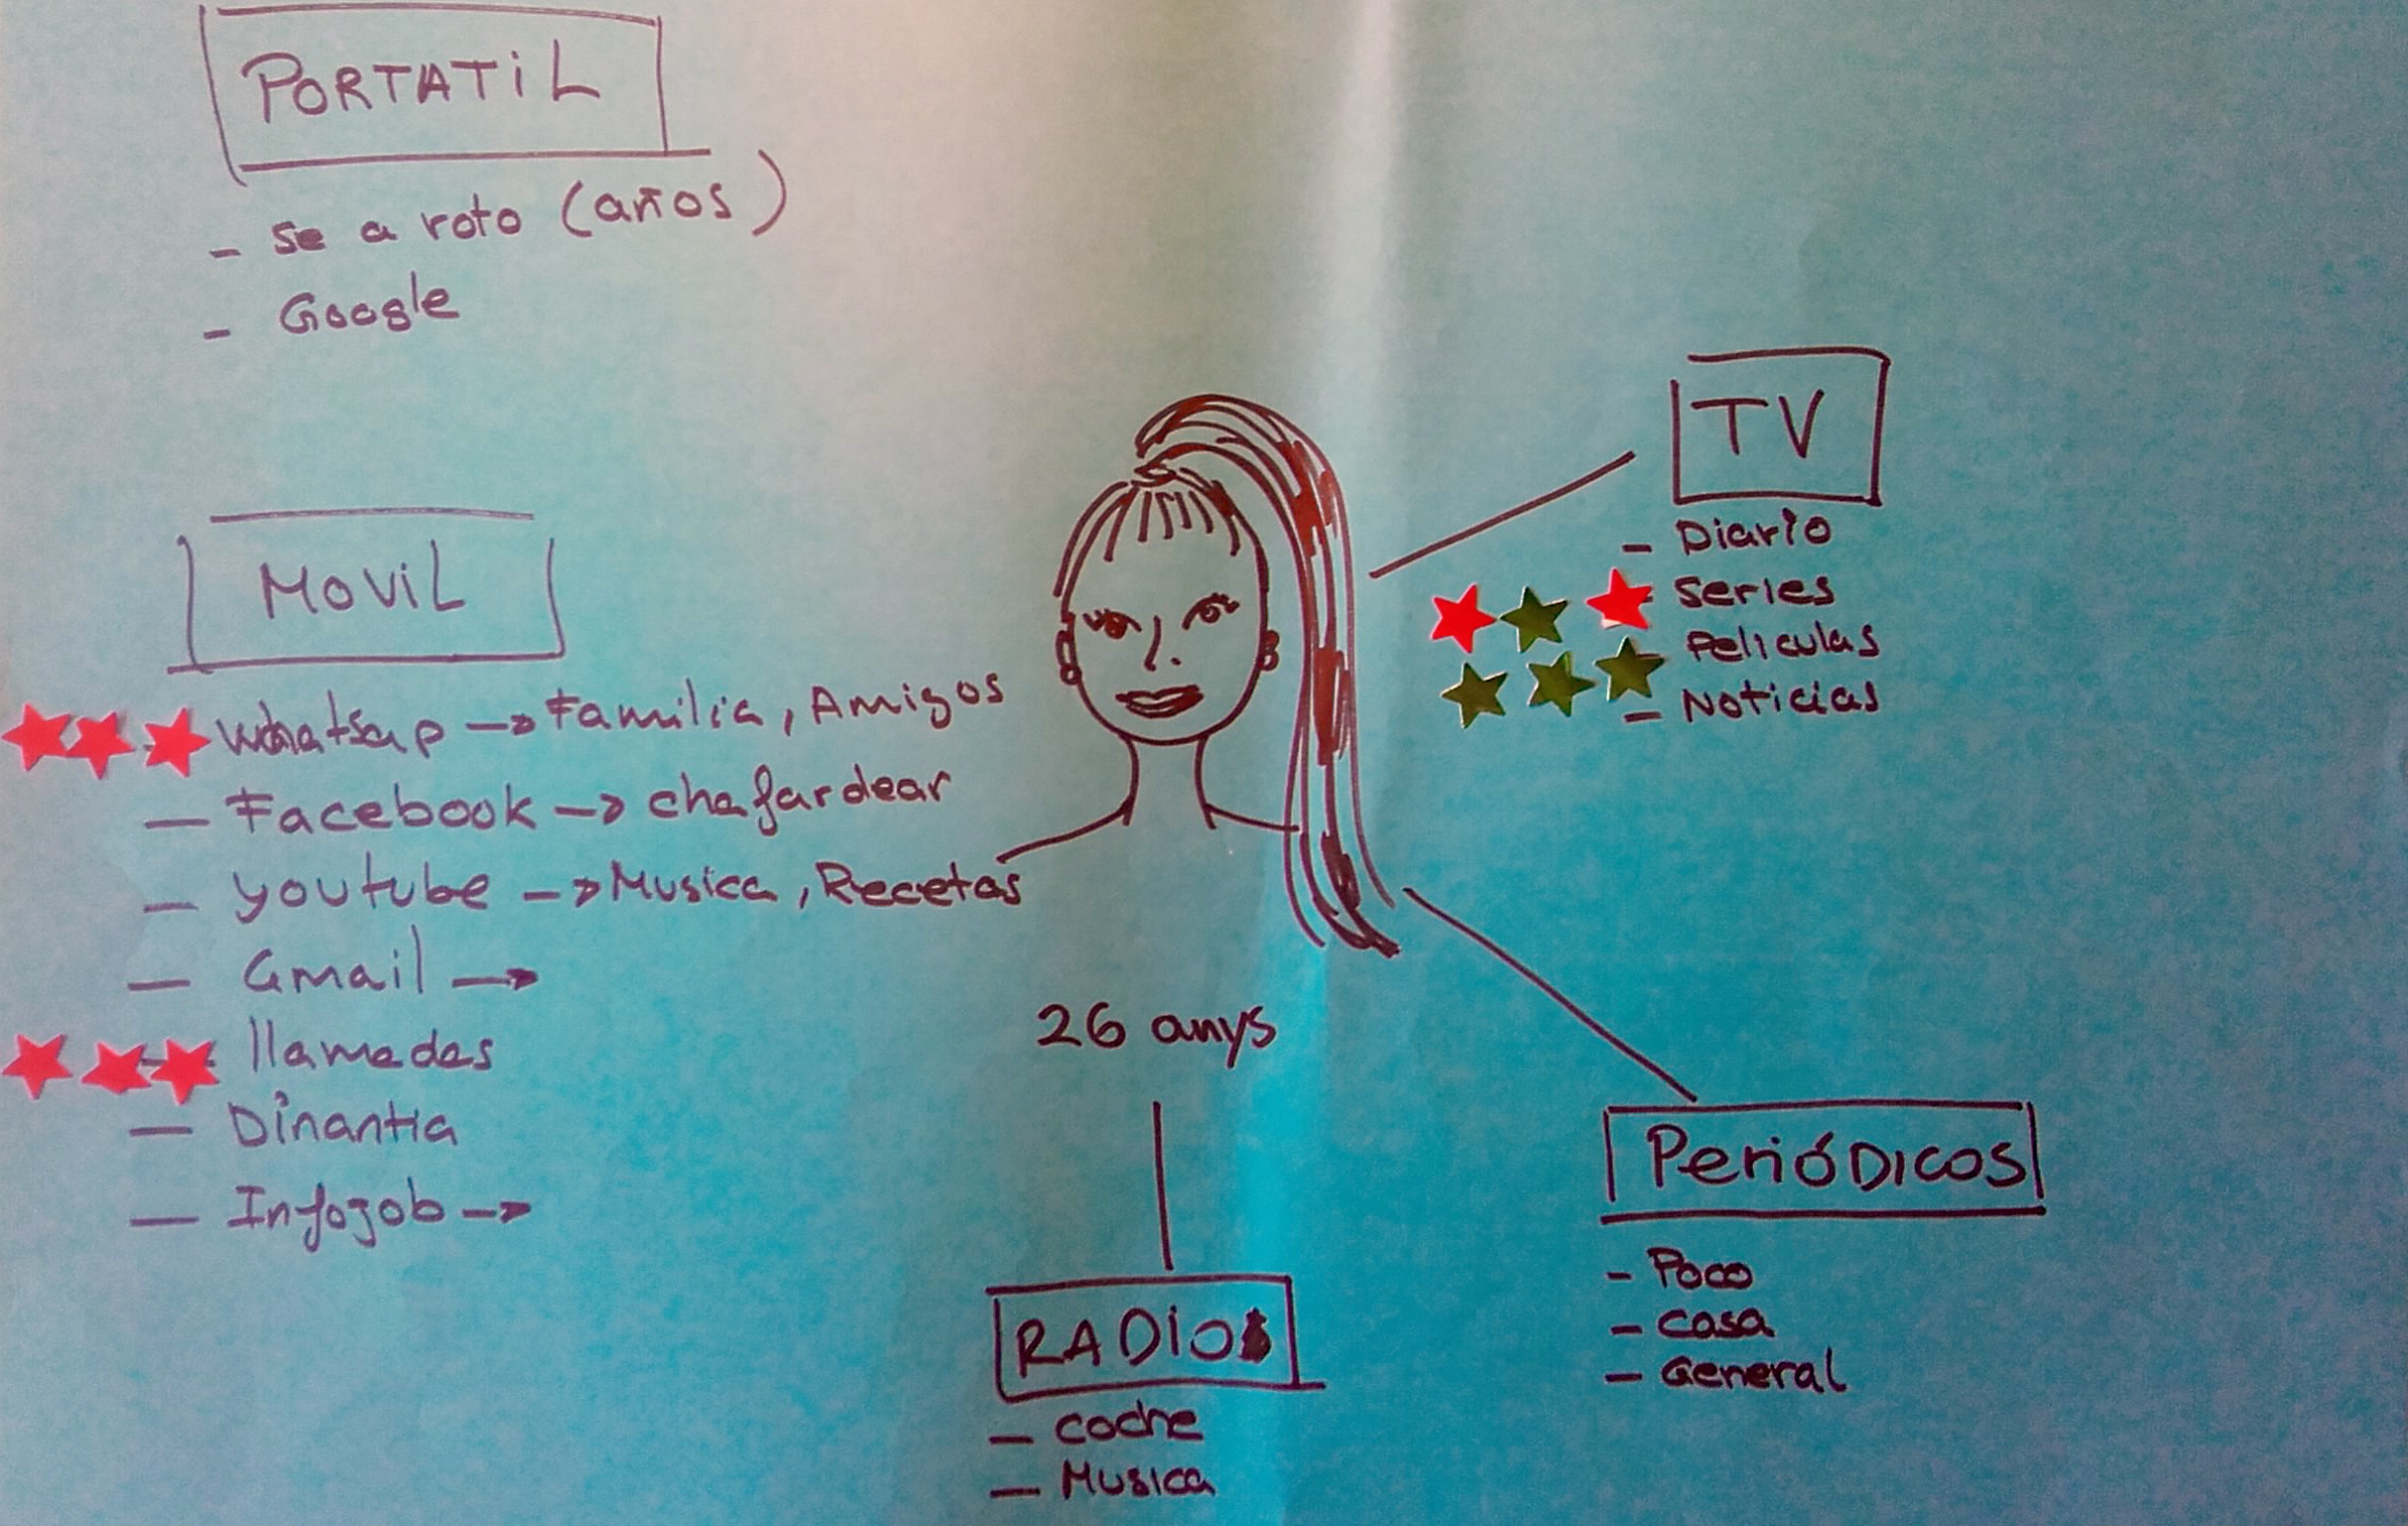 PORTATIL
- Se a roto (años)
- Google
MOVIL
- Whatsap -> Familia, Amigos
- Facebook -> chafardear
- youtube -> Musica, Recetas
- Gmail ->
- llamadas
- Dinantia
- Infojob ->
TV
- Diario
- Series
Peliculas
- Noticias
26 anys
RADIO
- coche
- Musica
PeriÓDICOS
- Poco
- casa
- General